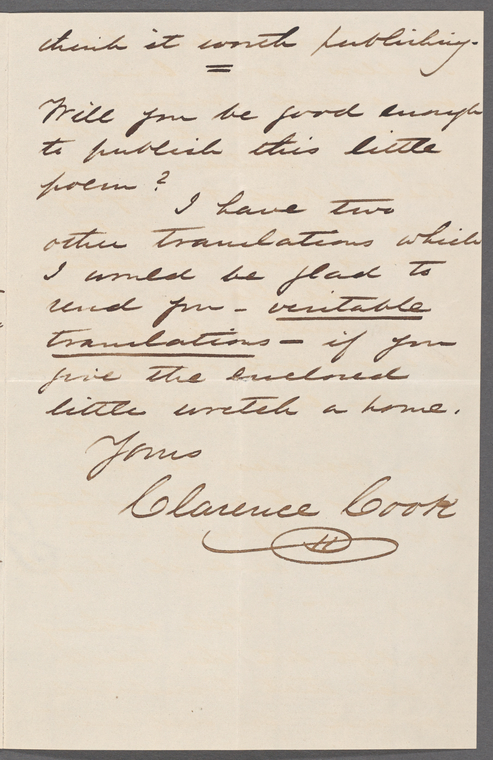 think it worth publishing.
Will you be good enough
to publish this little
poem?
I have two
other translations which
I would be glad to
send you - veritable
translations - if you
give the enclosed
little wretch a home.
Yours
Clarence Cook